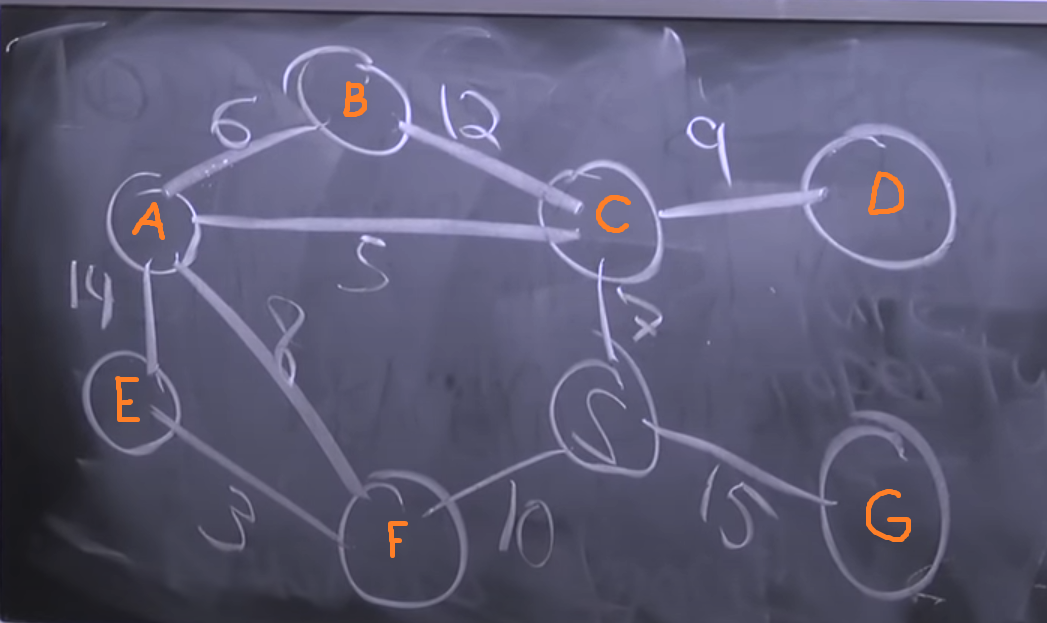 B
6
12
9
A
C
D
5
14
8
7
E
S
F
10
15
G
3